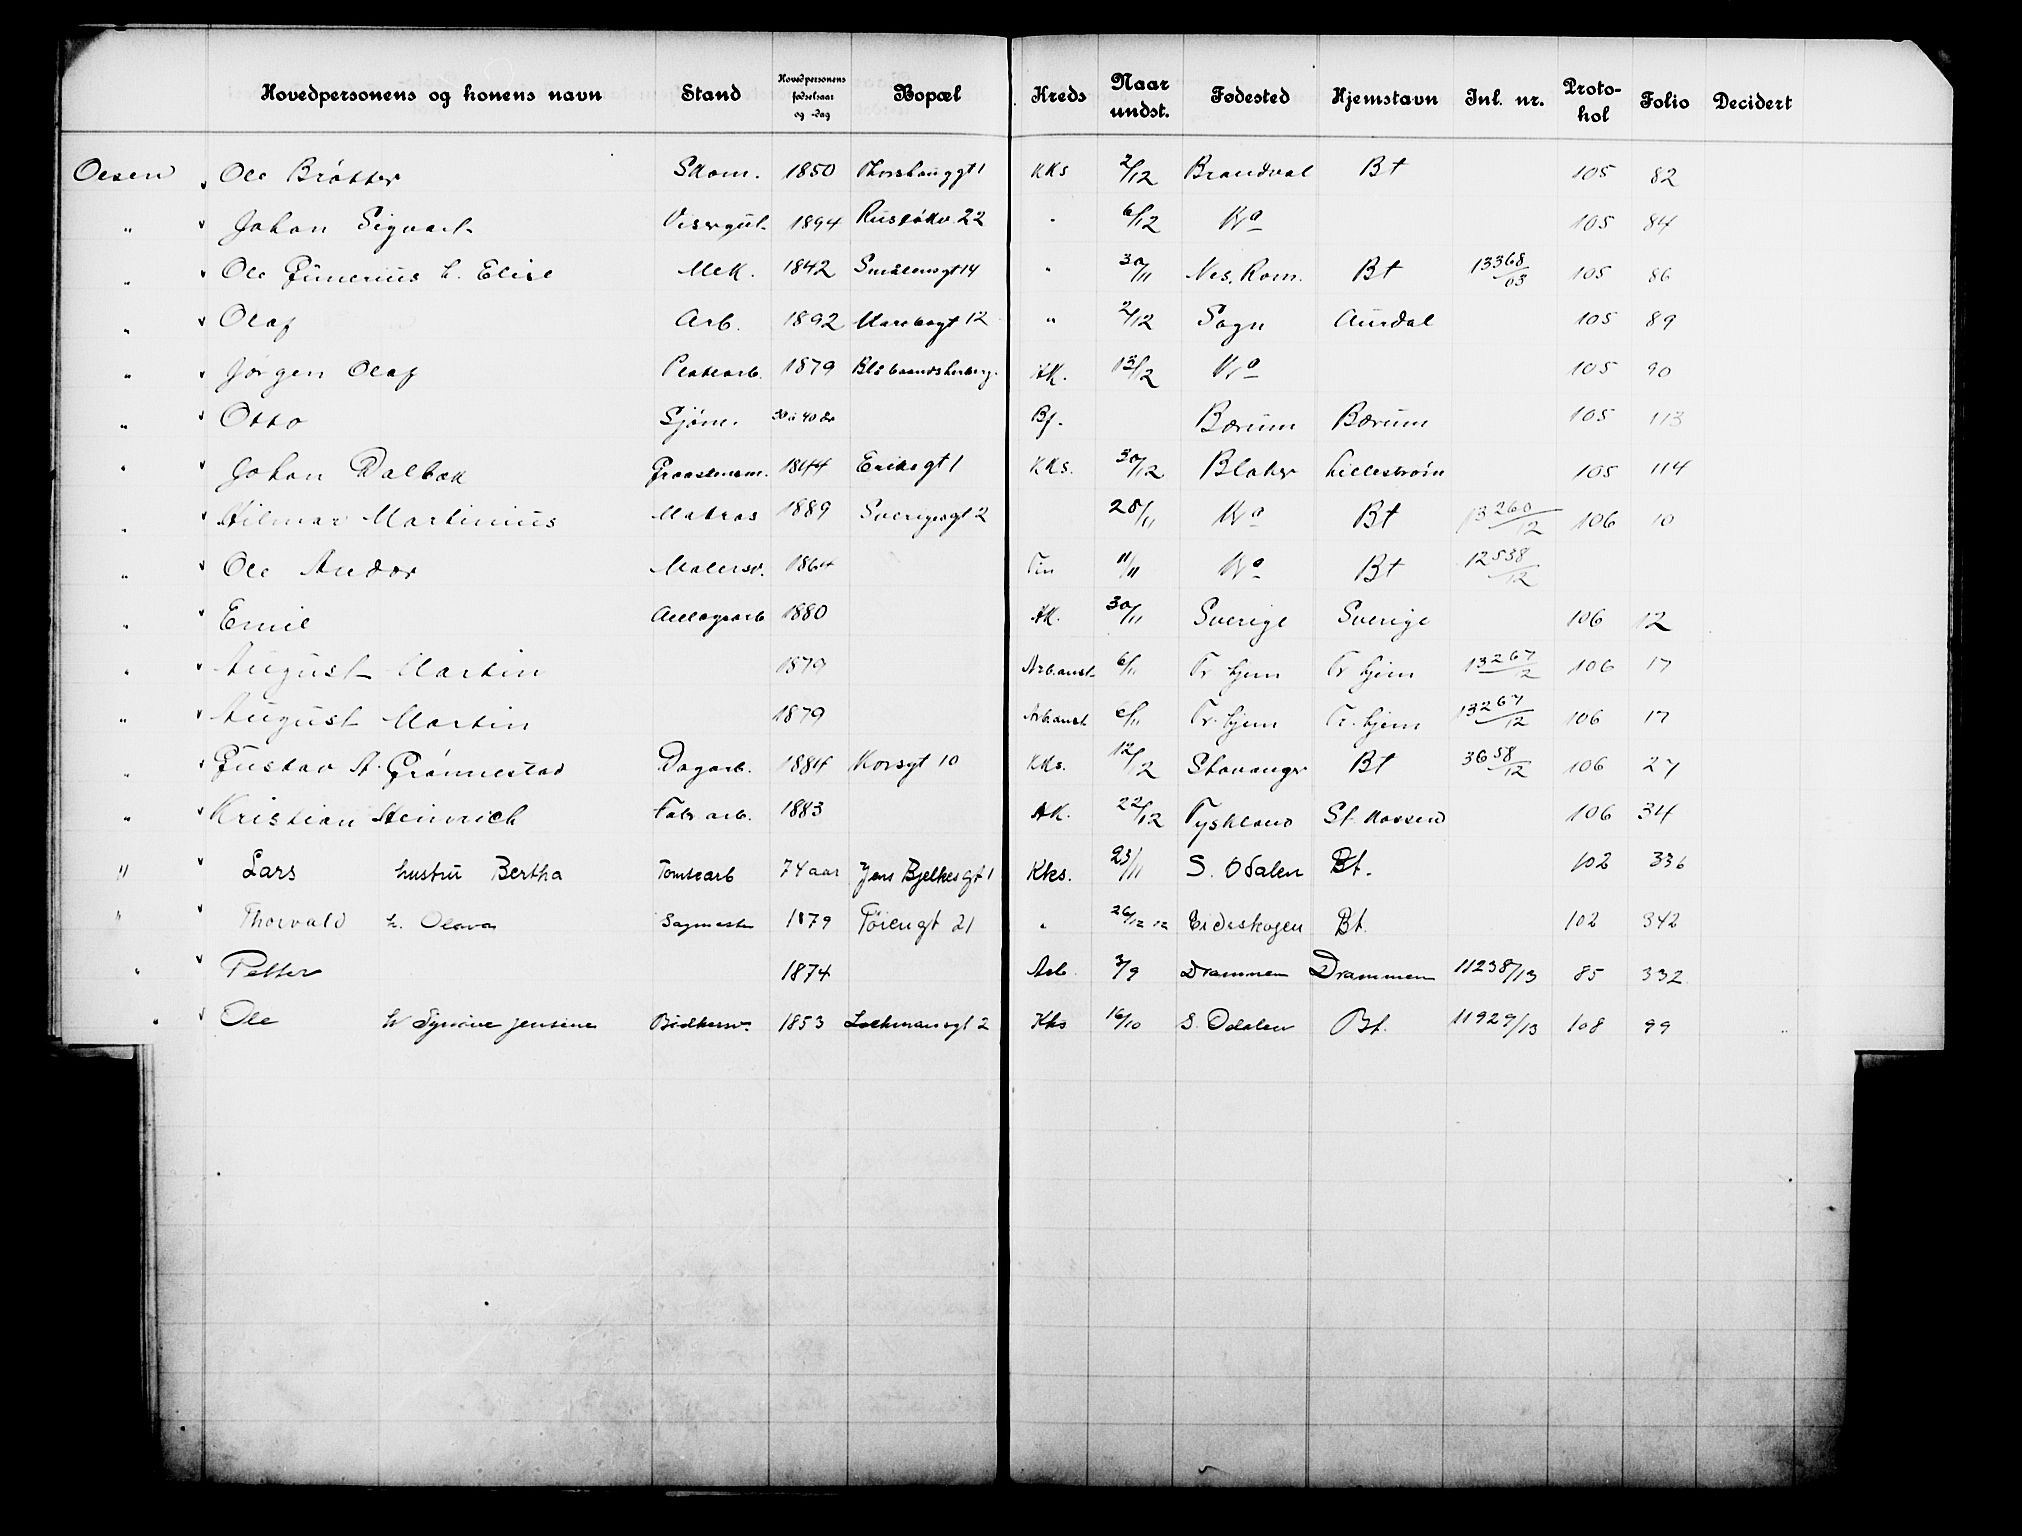 Hovedpersonens og konens navn Stand Hovedpersonens fødselsaar og -dag Bopæl Kreds Naar undst. Fødested Hjemstavn Inl. nr. Protokol Folio Decidert
Olsen Ole Bråtter Skom. 1850 Thorshauggt 1 KKs 2/12 Brandval Bt 105 82
" Johan Sigvart Visergut 1894 Rusløkv. 22 " 6/12 Kra 105 84
" Ole Gunerius h. Elise Mek. 1842 Smålensgt 14 " 30/11 Nes, Rom. Bt 13368/03 105 86
" Olaf Arb. 1892 Maribogt 12 " 2/12 Sogn Aurdal 105 89
" Jørgen Olaf Platearb. 1879 Blåbaandsherberg. AK. 13/12 Kra 105 90
" Otto Sjøm. 30 à 40 år Bf. Bærum Bærum 105 113
" Johan Dalbak Graastensm. 1844 Eriksgt 1 KKs. 30/12 Blaker Lillestrøm 105 114
" Hilmar Martinius Matros 1889 Sverigesgt 2 28/11 Kra Bt 13260/12 106 10
" Ole Andor Malersv. 1864 Tin 11/11 Kra Bt 12538/12
" Emil Anlægsarb 1880 AK. 30/11 Sverige Sverige 106 12
" August Martin 1879 Arb.anst. 6/11 Tr.hjem Tr.hjem 13267/12 106 17
" August Martin 1879 Arb.anst 6/11 Tr.hjem Tr.hjem 13267/12 106 17
" Gustav A. Grønnestad Dagarb. 1884 Korsgt 10 KKs. 12/2 Stavanger Bt 3658/12 106 27
" Kristian Heinrich Fabr.arb. 1883 AK. 22/12 Tyskland St. Hansen 106 34
" Lars hustru Bertha Tomtearb 74 aar Jens Bjelkesgt 1 Kks. 23/11 S. Odalen Bt. 102 336
" Thorvald h. Olava Sagmester 1879 Tøiengt 21 " 26/12 12 Eidskogen Bt. 102 342
" Petter 1874 Arb. 3/9 Drammen Drammen 11238/13 85 332
" Ole h Synnøve Jensine Bødkersv. 1853 Lochmansgt 2 Kks 16/10 S. Odalen Bt. 11929/13 108 99